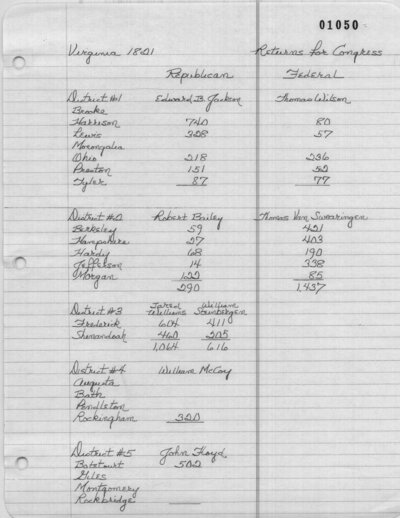 01050
Virginia 1821 Returns for Congress
Republican Federal
District #1 Edward B. Jackson Thomas Wilson
Brooke
Harrison 740 80
Lewis 328 57
Monongalia
Ohio 218 236
Preston 151 52
Tyler 87 77
District #2 Robert Bailey Thomas Van Swearingen
Berkeley 59 421
Hampshire 27 403
Hardy 68 190
Jefferson 14 338
Morgan 122 85
290 1,437
District #3 Jared Williams William Steenbergen
Frederick 604 411
Shenandoah 460 205
1,064 616
District #4 William McCoy
Augusta
Bath
Pendleton
Rockingham 320
District #5 John Floyd
Botetourt 502
Giles
Montgomery
Rockbridge